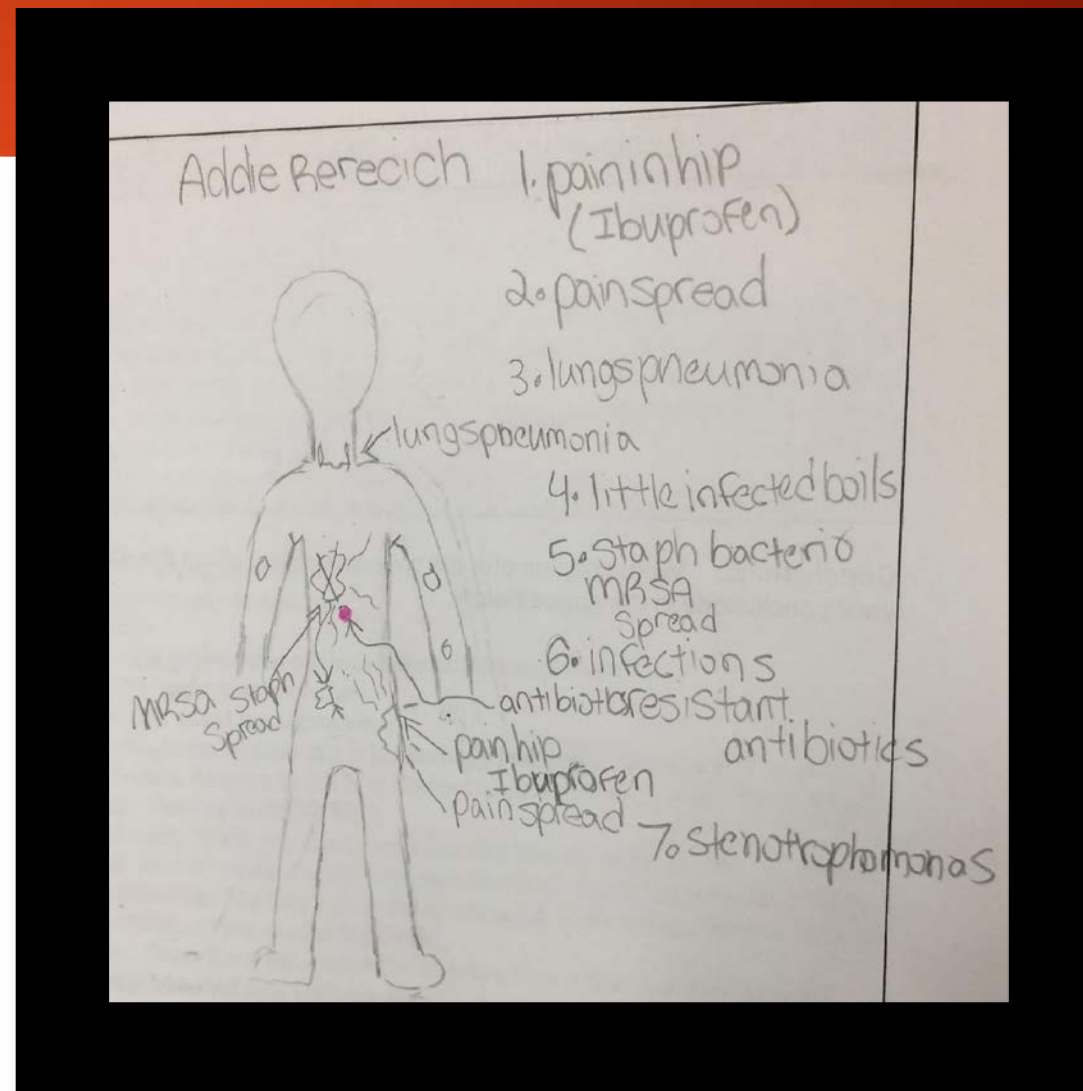 Addie Rerecich
1. pain in hip
(Ibuprofen)
2. pain spread
3. lungs pneumonia
lungs pneumonia
4. little infected boils
5. Staph bacteria
MRSA
Spread
6. infections
antibiotic resistant
antibiotics
MRSA Staph
Spread
pain hip
Ibuprofen
pain spread
7. Stenotrophomonas